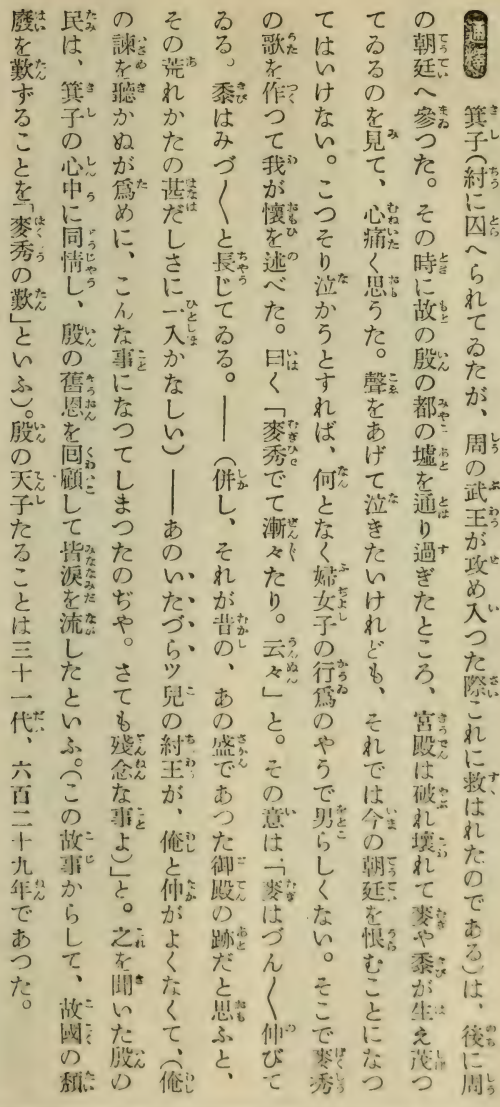 通釋 箕子(紂に囚へられてゐたが、周の武王が攻め入つた際これに救はれたのである)は、後に周
の朝廷へ參つた。その時に故の殷の都の墟を通り過ぎたところ、宮殿は破れ壞れて麥や黍が生え茂つ
てゐるのを見て、心痛く思うた。聲をあげて泣きたいけれども、それでは今の朝廷を恨むことになつ
てはいけない。こつそり泣かうとすれば、何となく婦女子の行爲のやうで男らしくない。そこで麥秀
の歌を作つて我が懷を述べた。曰く「麥秀でて漸々たり。云々」と。その意は「麥はづん〱伸びて
ゐる。黍はみづ〱と長じてゐる。――(併し、それが昔の、あの盛であつた御殿の跡だと思ふと、
その荒れかたの甚だしさに一入かなしい)――あのいたづらツ兒の紂王が、俺と仲がよくなくて、(俺
の諫を聽かぬが爲めに、こんな事になつてしまつたのぢや。さても殘念な事よ)」と。之を聞いた殷の
民は、箕子の心中に同情し、殷の舊恩を回顧して皆淚を流したといふ。(この故事からして、故國の頽
廢を歎ずることを「麥秀の歎」といふ)。殷の天子たることは三十一代、六百二十九年であつた。